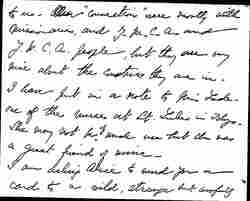 to us. Our "connection" were mostly with
missionaries, and Y.M.C.A. and
Y.W.C.A. people, but they are very
nice about the customs they are in.
I have put in a note to Miss
one of the nurses at St. Lukes in Tokyo.
She may not be much use but she was
a great friend of mine.
I am asking Alice to send you a
card to a wild, strange but awfully